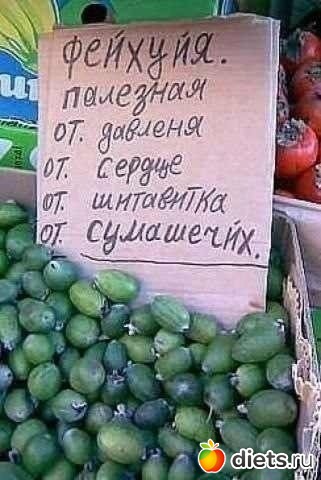 фейхуйя.
палезная
от. давленя
от. сердце
от. шитавитка
от. сумашечйх.
diets.ru